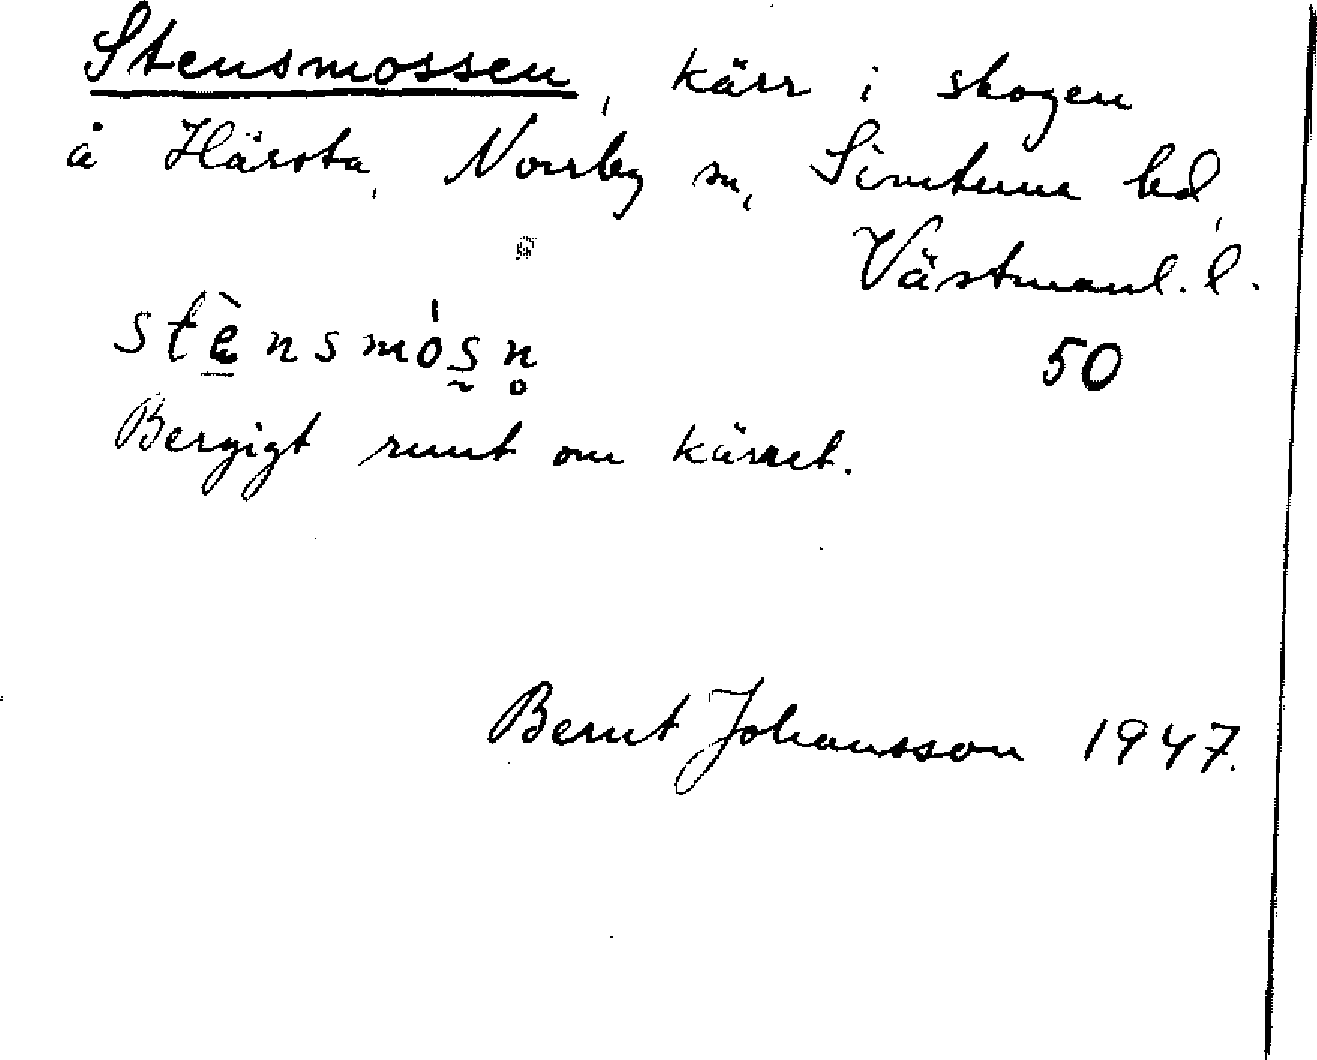 Stensmossen, kärr i skogen
å Härsta, Norrby sn, Simtuna hd,
Västmanl. l.
stè̱nsmó̍s̰n̥
50
Bergigt runt om kärret.
Bernt Johansson 1947.